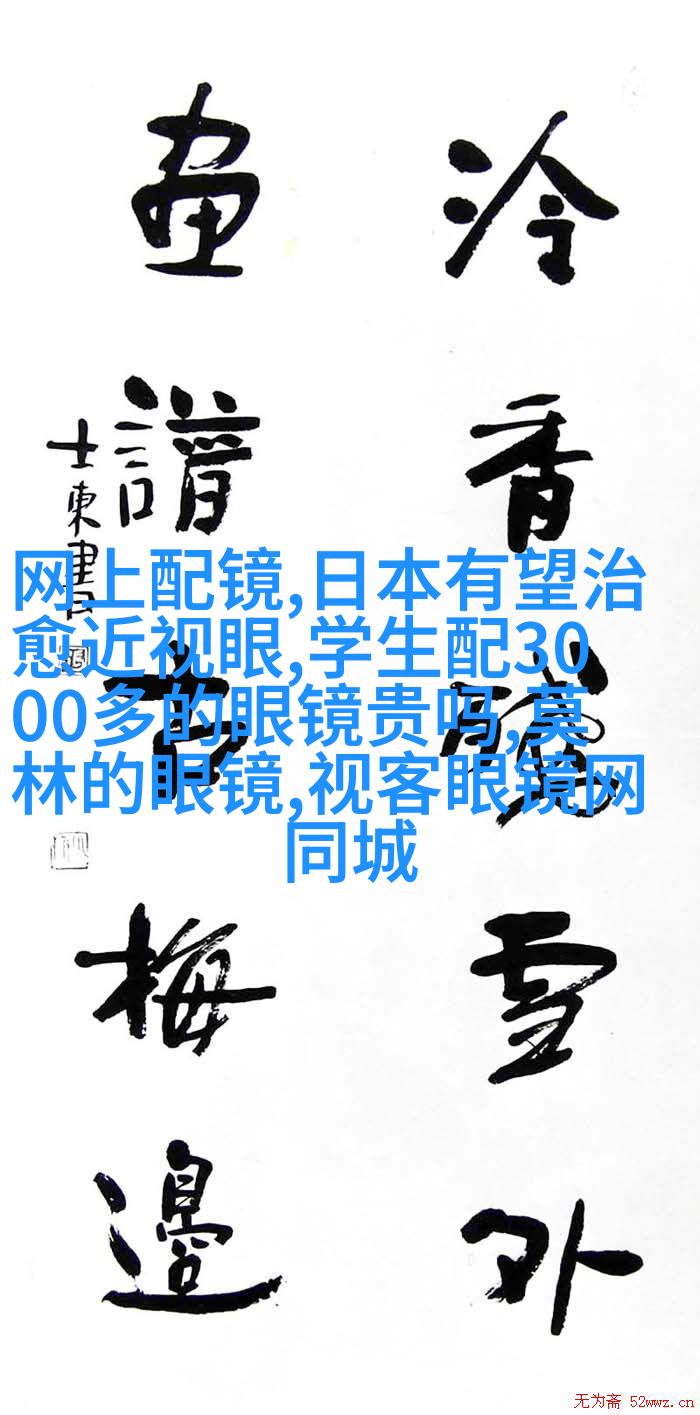 冷香雪外
畫譜古梅邊
士東書
网上配镜,日本有望治
愈近视眼,学生配30
00多的眼镜贵吗,莫
林的眼镜,视客眼镜网
同城
无为斋 52wwz.cn